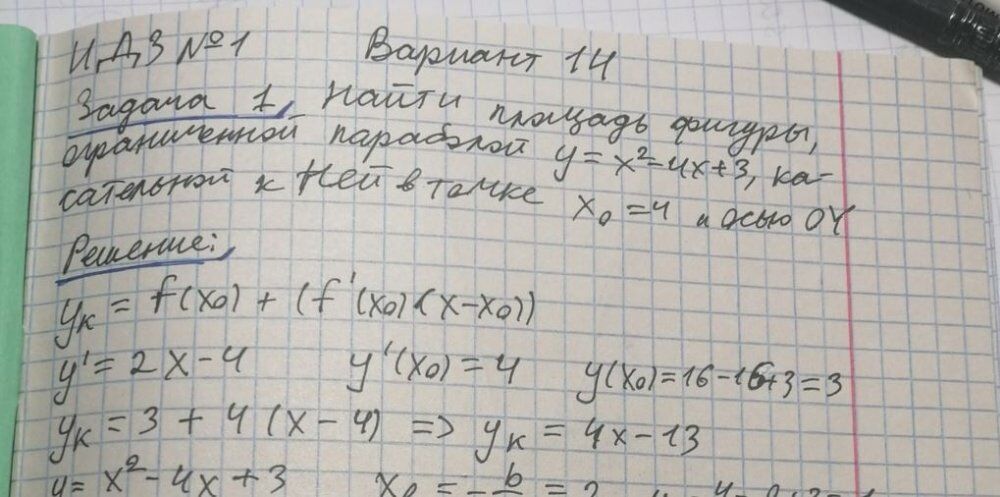 ИДЗ №1 Вариант 14
Задача 1. Найти площадь фигуры,
ограниченной параболой y = x²-4x+3, ка-
сательной к ней в точке x₀ = 4 и осью OY
Решение:
yₖ = f(x₀) + (f'(x₀)·(x-x₀))
y' = 2x-4 y'(x₀) = 4 y(x₀) = 16-16+3 = 3
yₖ = 3 + 4(x-4) => yₖ = 4x-13
y = x²-4x+3 x₀ = -b = 2